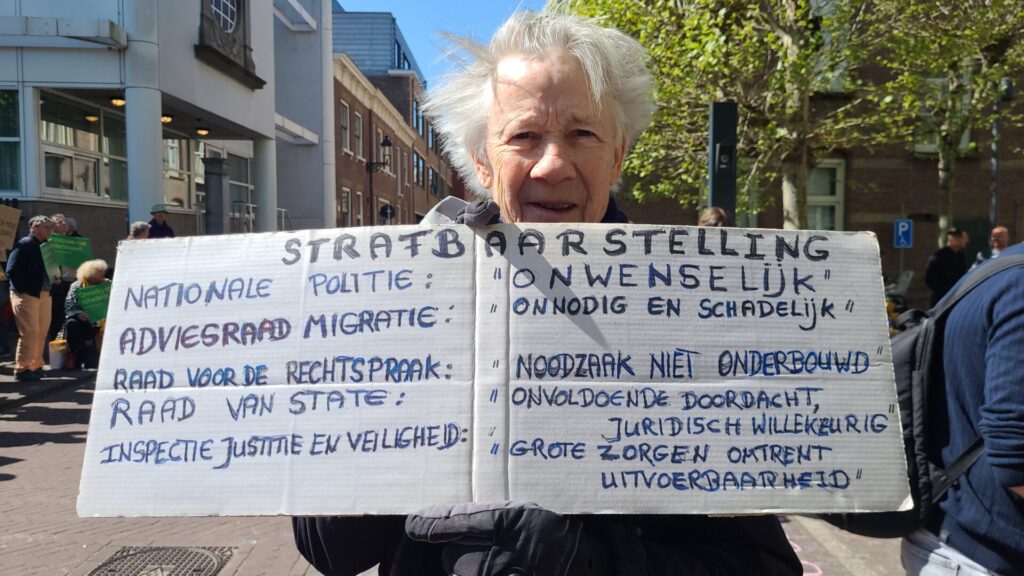 STRAFBAARSTELLING
NATIONALE POLITIE: "ONWENSELIJK"
ADVIESRAAD MIGRATIE: "ONNODIG EN SCHADELIJK"
RAAD VOOR DE RECHTSPRAAK: "NOODZAAK NIET ONDERBOUWD"
RAAD VAN STATE: "ONVOLDOENDE DOORDACHT,
JURIDISCH WILLEKEURIG"
INSPECTIE JUSTITIE EN VEILIGHEID: "GROTE ZORGEN OMTRENT
UITVOERBAARHEID"
P